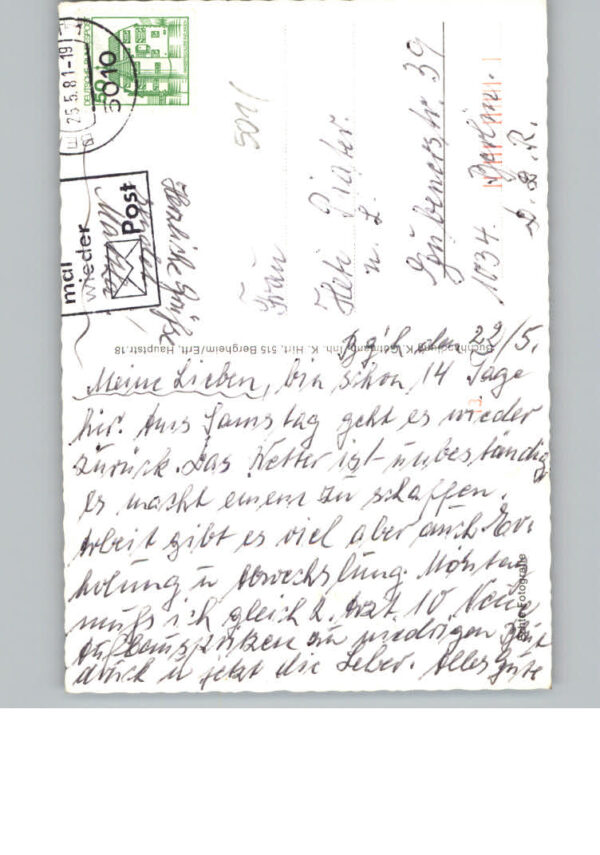 Bgh. den 22/5.
Meine Lieben, bin schon 14 Tage
hir. Am Samstag geht es wieder
zurück. Das Wetter ist unbeständig
es macht einem zu schaffen.
Arbeit gibt es viel aber auch Er-
holung u Abwechslung. Montag
muß ich gleich z. Arzt. 10 Venen
Aufbauspritzen zu niedrigen Blut
druck u jetzt die Leber. Alles Gute
Herzliche Grüße
Frau
u. L.
Gubenerstr. 39
1034 Berlin.
D.D.R.
5021
25.5.81-19
5010
DEUTSCHE BUNDESPOST
50
mal
wieder
Post
Buchhandlung K. Gütmann, Inh. K. Hirt, 515 Bergheim/Erft, Hauptstr. 18
Echte Fotografie